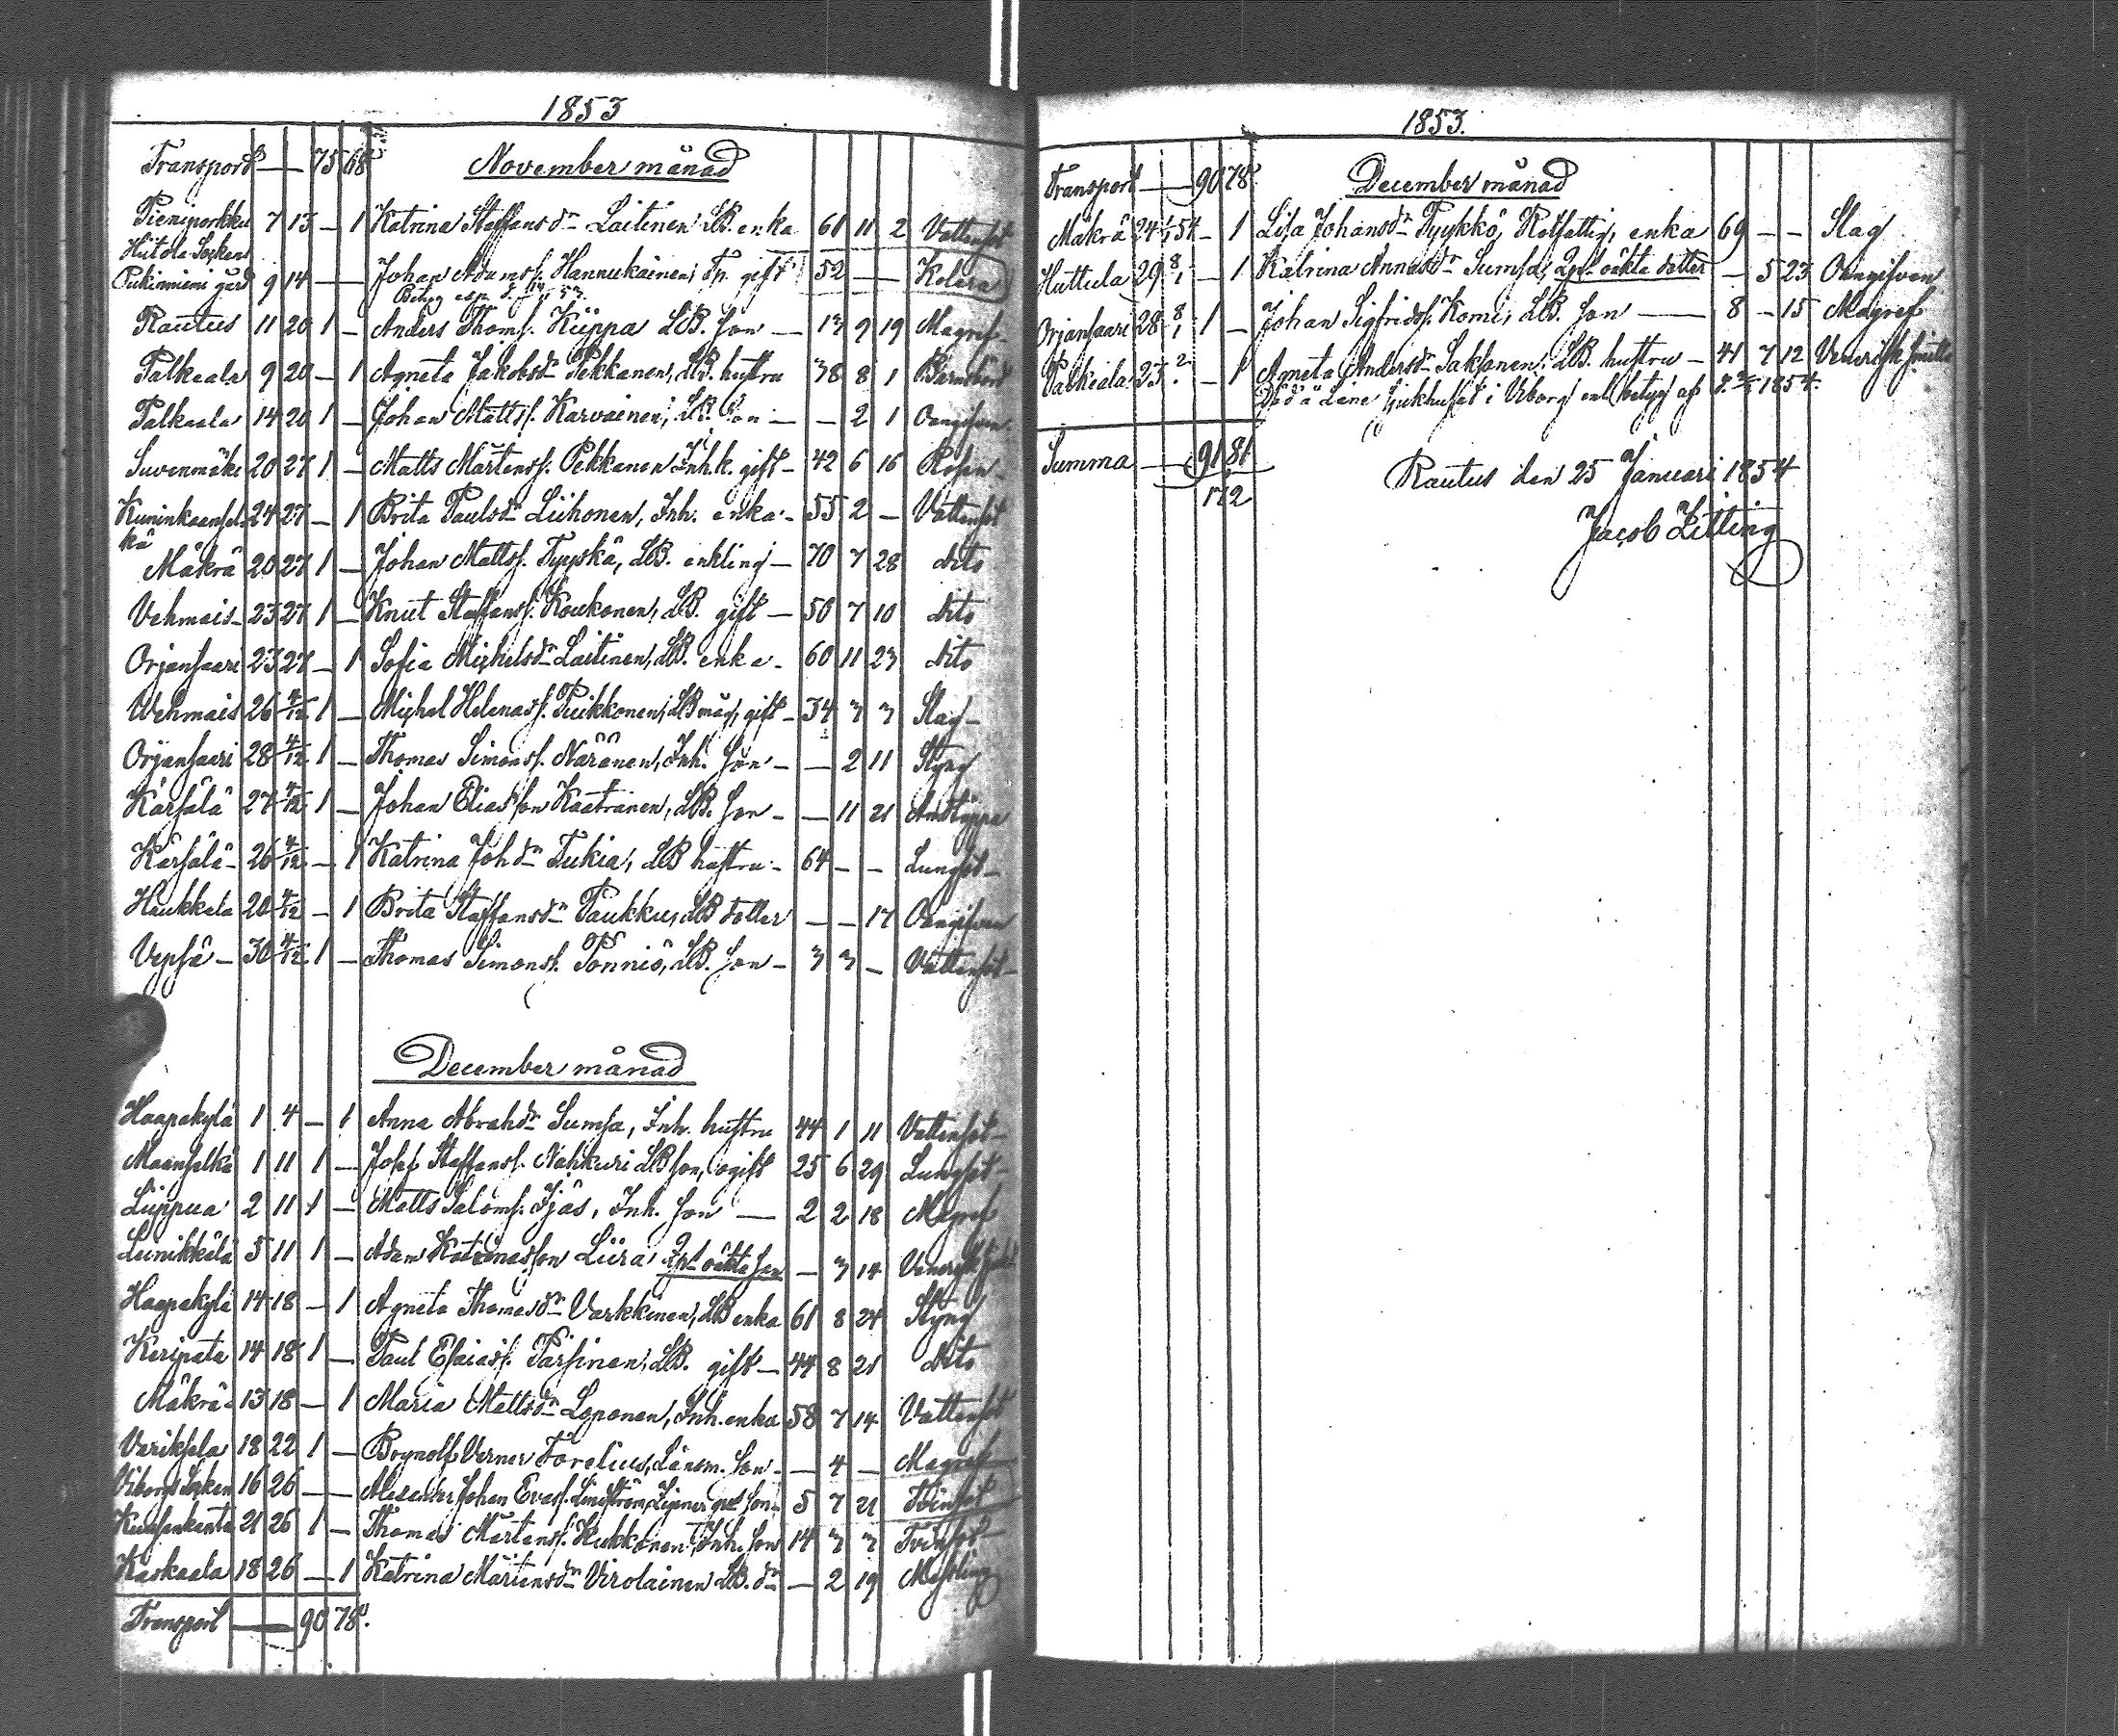 1853
Transport — 75 68. November månad
Pieniporkku 7 13 — 1 Katrina Staffansdr Laitinen LB. enka 61 11 2 Vattensot
Hiitola Socken
Pukinniemi gård 9 14 — — Johan Adamss. Hannukainen, Tp. gift 52 — — Kolera
Rautus 11 20 1 — Anders Thoms. Kiippa LB. son — 13 9 19 Magref.
Palkeala 9 20 — 1 Agneta Jakobsdr Pekkanen, LB. hustru 38 8 1 Barnsbörd
Palkeala 14 20 1 — Johan Mattss. Karvainen, LB. son — — 2 1 Oangifven
Suvenmäki 20 27 1 — Matts Mårtenss. Pekkanen Inh. k. gift — 42 6 16 Rosen —
Kuninkaansel- 24 27 — 1 Brita Paulsdr Liihonen, Inh. enka — 55 2 — Vattensot
kä
Mäkrä 20 27 1 — Johan Mattss. Tyyskä, LB. enkling — 70 7 28 dito
Vehmais — 23 27 1 — Knut Staffanss. Koukonen, LB. gift — 50 7 10 dito
Orjansaari 23 27 — 1 Sofia Michelsdr Laitinen, LB. enka — 60 11 23 dito
Wehmais 26 4/12 1 — Michel Helenass. Puikkonen, LB måg, gift — 34 3 3 Slag —
Orjansaari 28 4/12 1 — Thomas Simonss. Näränen, Inh. son — — 2 11 Styng
Kärsälä 27 4/12 1 — Johan Eliasson Kaatranen, LB. son — — 11 21 Andtäppa
Kärsälä — 26 4/12 — 1 Katrina Joh dr Tukia, LB hustru — 64 — — Lungsot —
Haukkala 20 4/12 — 1 Brita Staffansdr Paukku, LB dotter — — 17 Oangifven
Vepsä — 30 4/12 1 — Thomas Simonss. Ponniö, LB. son — 3 3 — Vattensot —
December månad
Haapakylä 1 4 — 1 Anna Abrahdr Sumsa, Inh. hustru 44 1 11 Vattensot —
Maanselkä 1 11 1 — Josef Staffanss. Nahkuri LB son, ogift 25 6 29 Lungsot —
Liippua 2 11 1 — Matts Salomss. Ijäs, Inh. son — 2 2 18 Magref
Leinikkälä 5 11 1 — Adam Katrinasson Liira oäkta son — 3 14 Venerisk
Haapakylä 14 18 — 1 Agneta Thomasdr Varkkinen, LB enka 61 8 24 Styng
Keripata 14 18 1 — Paul Esaiass. Pärsinen, LB. gift — 44 8 21 dito
Mäkrä — 13 18 — 1 Maria Mattsdr Loponen, Inh. enka 58 7 14 Vattensot
Variksela 18 22 1 — Brynolf Verner Forelius, Länsm. son — — 4 — Magref
Viborgs Socken 16 26 — — Alexander Johan Evass. Lindström, son — 5 7 21 Tvinsot
21 26 1 — Thomas Mårtenss. Kukkonen, Inh. son 14 3 3 Tvinsot —
Kaskaala 18 26 — 1 Katrina Mårtensdr Virolainen LB. dr — 2 19 Messling
Transport — 90 78.
1853.
Transport — 90 78. December månad
Mäkrä 24 1/1 54 — 1 Lisa Johansdr Tyykkö, Rotfattig, enka 69 — — Slag
Huttula 29 8/1 — 1 Katrina Annasdr Sumsa, oäkta dotter — 5 23 Oangifven
Orjansaari 28 8/1 1 — Johan Sigfridss. Komi, LB. son — 8 — 15 Magref
Palkeala 23 — 1 Agneta Andersdr Saksanen, LB. hustru — 41 7 12 Venerisk smitta
Död å Läne sjukhuset i Viborg enl. betyg af d. 1854.
Summa — 91 81
172
Rautus den 25 Januari 1854
Jacob Litting